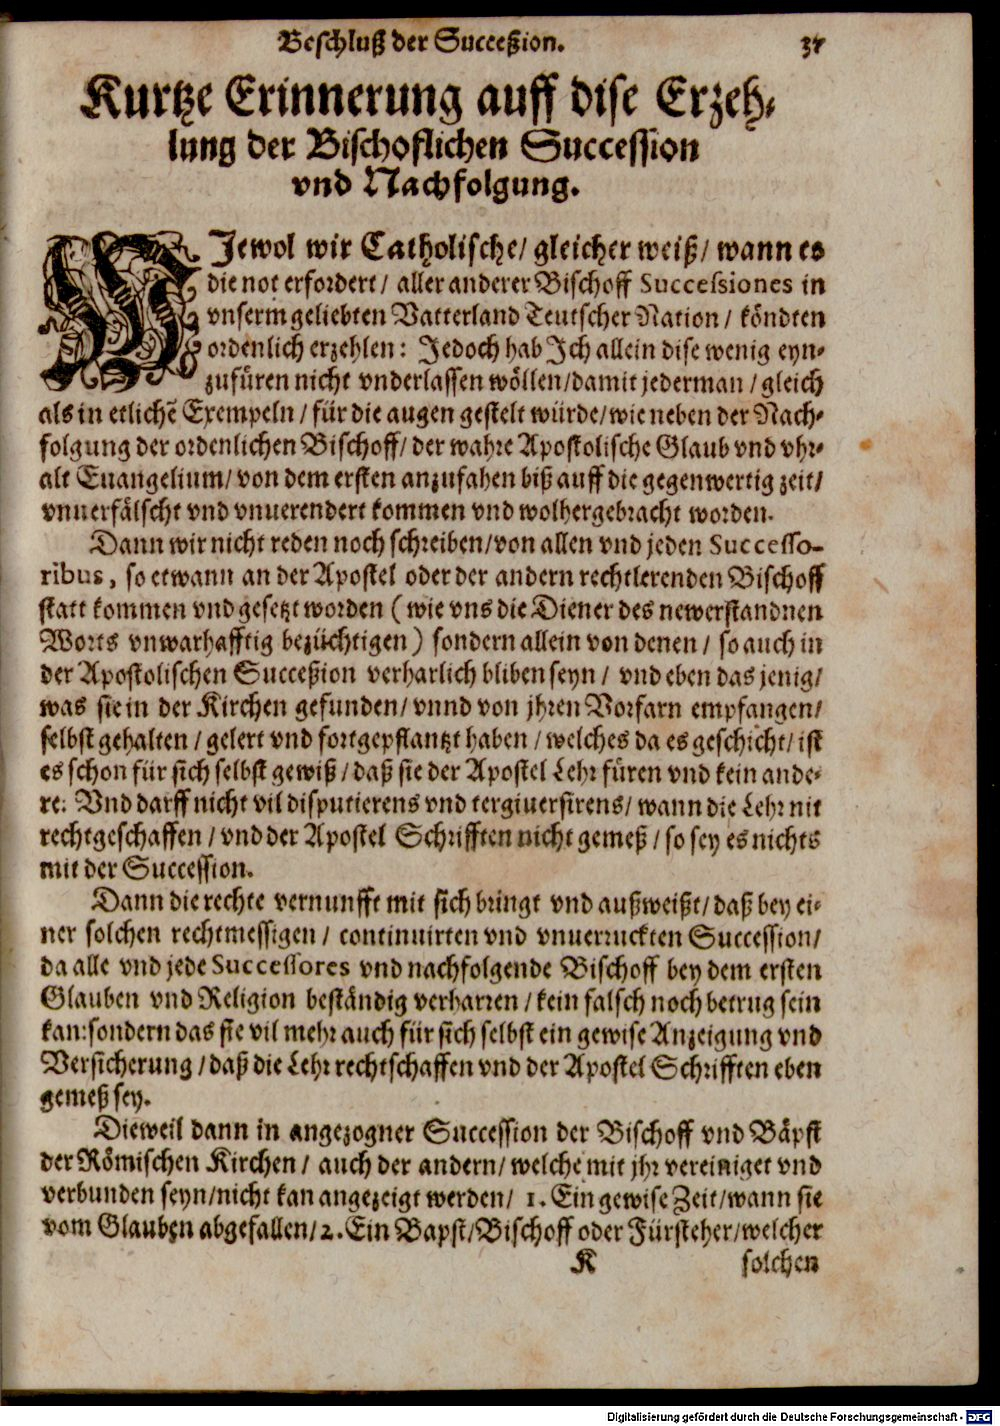 Beschluß der Succeßion. 37
Kurtze Erinnerung auff dise Erzeh-
lung der Bischoflichen Succession
vnd Nachfolgung.
WJewol wir Catholische/ gleicher weiß/ wann es
die not erfordert/ aller anderer Bischoff Successiones in
vnserm geliebten Vatterland Teutscher Nation/ köndten
ordenlich erzehlen: Jedoch hab Jch allein dise wenig eyn-
zufüren nicht vnderlassen wöllen/damit jederman/ gleich
als in etlichē Exempeln/ für die augen gestelt würde/wie neben der Nach-
folgung der ordenlichen Bischoff/ der wahre Apostolische Glaub vnd vhr-
alt Euangelium/ von dem ersten anzufahen biß auff die gegenwertig zeit/
vnuerfälscht vnd vnuerendert kommen vnd wolhergebracht worden.
Dann wir nicht reden noch schreiben/von allen vnd jeden Successo-
ribus, so etwann an der Apostel oder der andern rechtlerenden Bischoff
statt kommen vnd gesetzt worden (wie vns die Diener des newerstandnen
Worts vnwarhafftig bezüchtigen) sondern allein von denen/ so auch in
der Apostolischen Succeßion verharlich bliben seyn/ vnd eben das jenig/
was sie in der Kirchen gefunden/ vnnd von jhren Vorfarn empfangen/
selbst gehalten/ gelert vnd fortgepflantzt haben/ welches da es geschicht/ ist
es schon für sich selbst gewiß/ daß sie der Apostel Lehr füren vnd kein ande-
re. Vnd darff nicht vil disputierens vnd tergiuersirens/ wann die Lehr nit
rechtgeschaffen/ vnd der Apostel Schrifften nicht gemeß/ so sey es nichts
mit der Succession.
Dann die rechte vernunfft mit sich bringt vnd außweißt/ daß bey ei-
ner solchen rechtmessigen/ continuirten vnd vnuerruckten Succession/
da alle vnd jede Successores vnd nachfolgende Bischoff bey dem ersten
Glauben vnd Religion beständig verharren/ kein falsch noch betrug sein
kan: sondern das sie vil mehr auch für sich selbst ein gewise Anzeigung vnd
Versicherung/ daß die Lehr rechtschaffen vnd der Apostel Schrifften eben
gemeß sey.
Dieweil dann in angezogner Succession der Bischoff vnd Bäpst
der Römischen Kirchen/ auch der andern/ welche mit jhr vereiniget vnd
verbunden seyn/nicht kan angezeigt werden/ 1. Ein gewise Zeit/wann sie
vom Glauben abgefallen/ 2. Ein Bapst/ Bischoff oder Fürsteher/welcher
K solchen
Digitalisierung gefördert durch die Deutsche Forschungsgemeinschaft - DFG